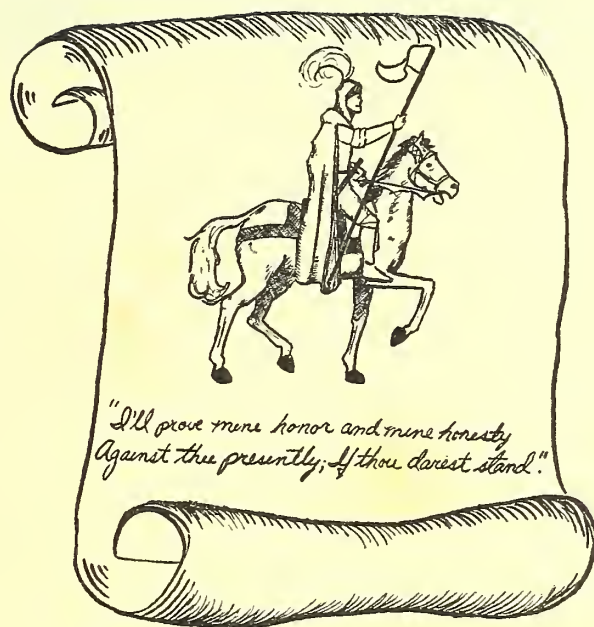 "I'll prove mine honor and mine honesty
Against thee presently; If thou darest stand."